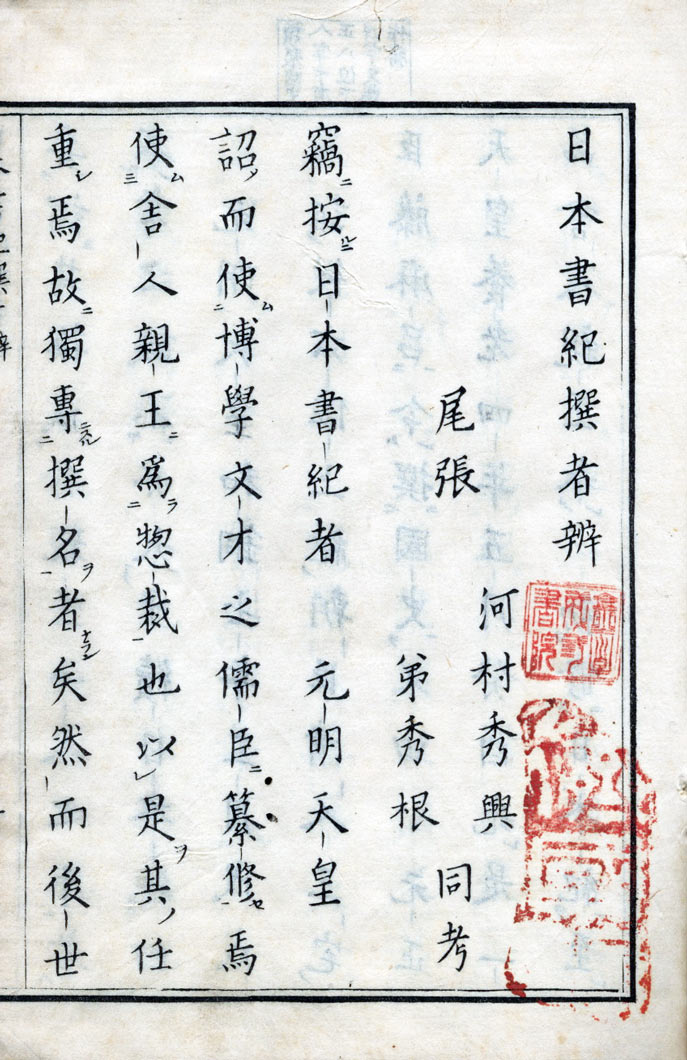 日本書紀撰者辨
尾張
河村秀興
弟秀根
同考
竊按日本書紀者 元明天皇
詔而使博學文才之儒臣纂修焉
使舍人親王爲惣裁也以是其任
重焉故獨專撰名者矣然而後世